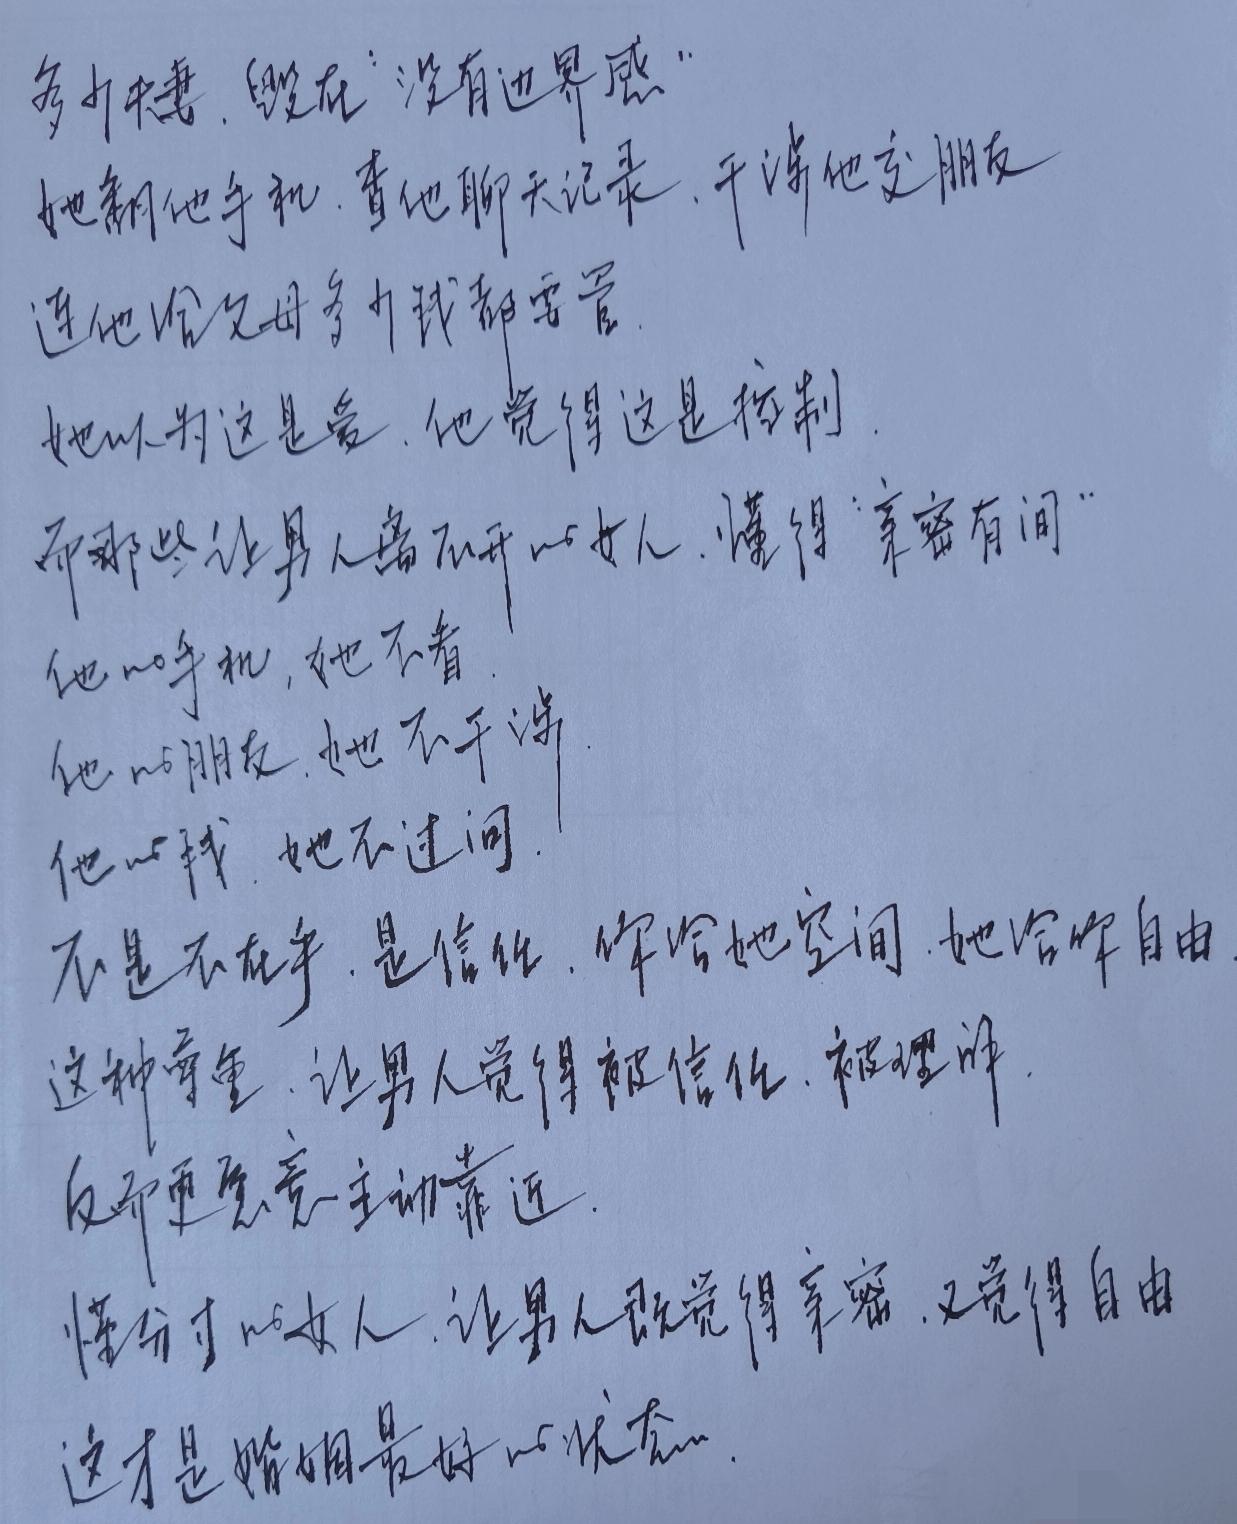 多少夫妻，毁在“没有边界感”
她翻他手机，查他聊天记录，干涉他交朋友
连他给父母多少钱都要管.
她以为这是爱，他觉得这是控制.
而那些让男人离不开的女人，懂得“亲密有间”
他的手机，她不看.
他的朋友，她不干涉.
他的钱，她不过问.
不是不在乎，是信任，你给她空间，她给你自由.
这种尊重，让男人觉得被信任，被理解.
反而更愿意主动靠近.
懂分寸的女人，让男人既觉得亲密，又觉得自由
这才是婚姻最好的状态.